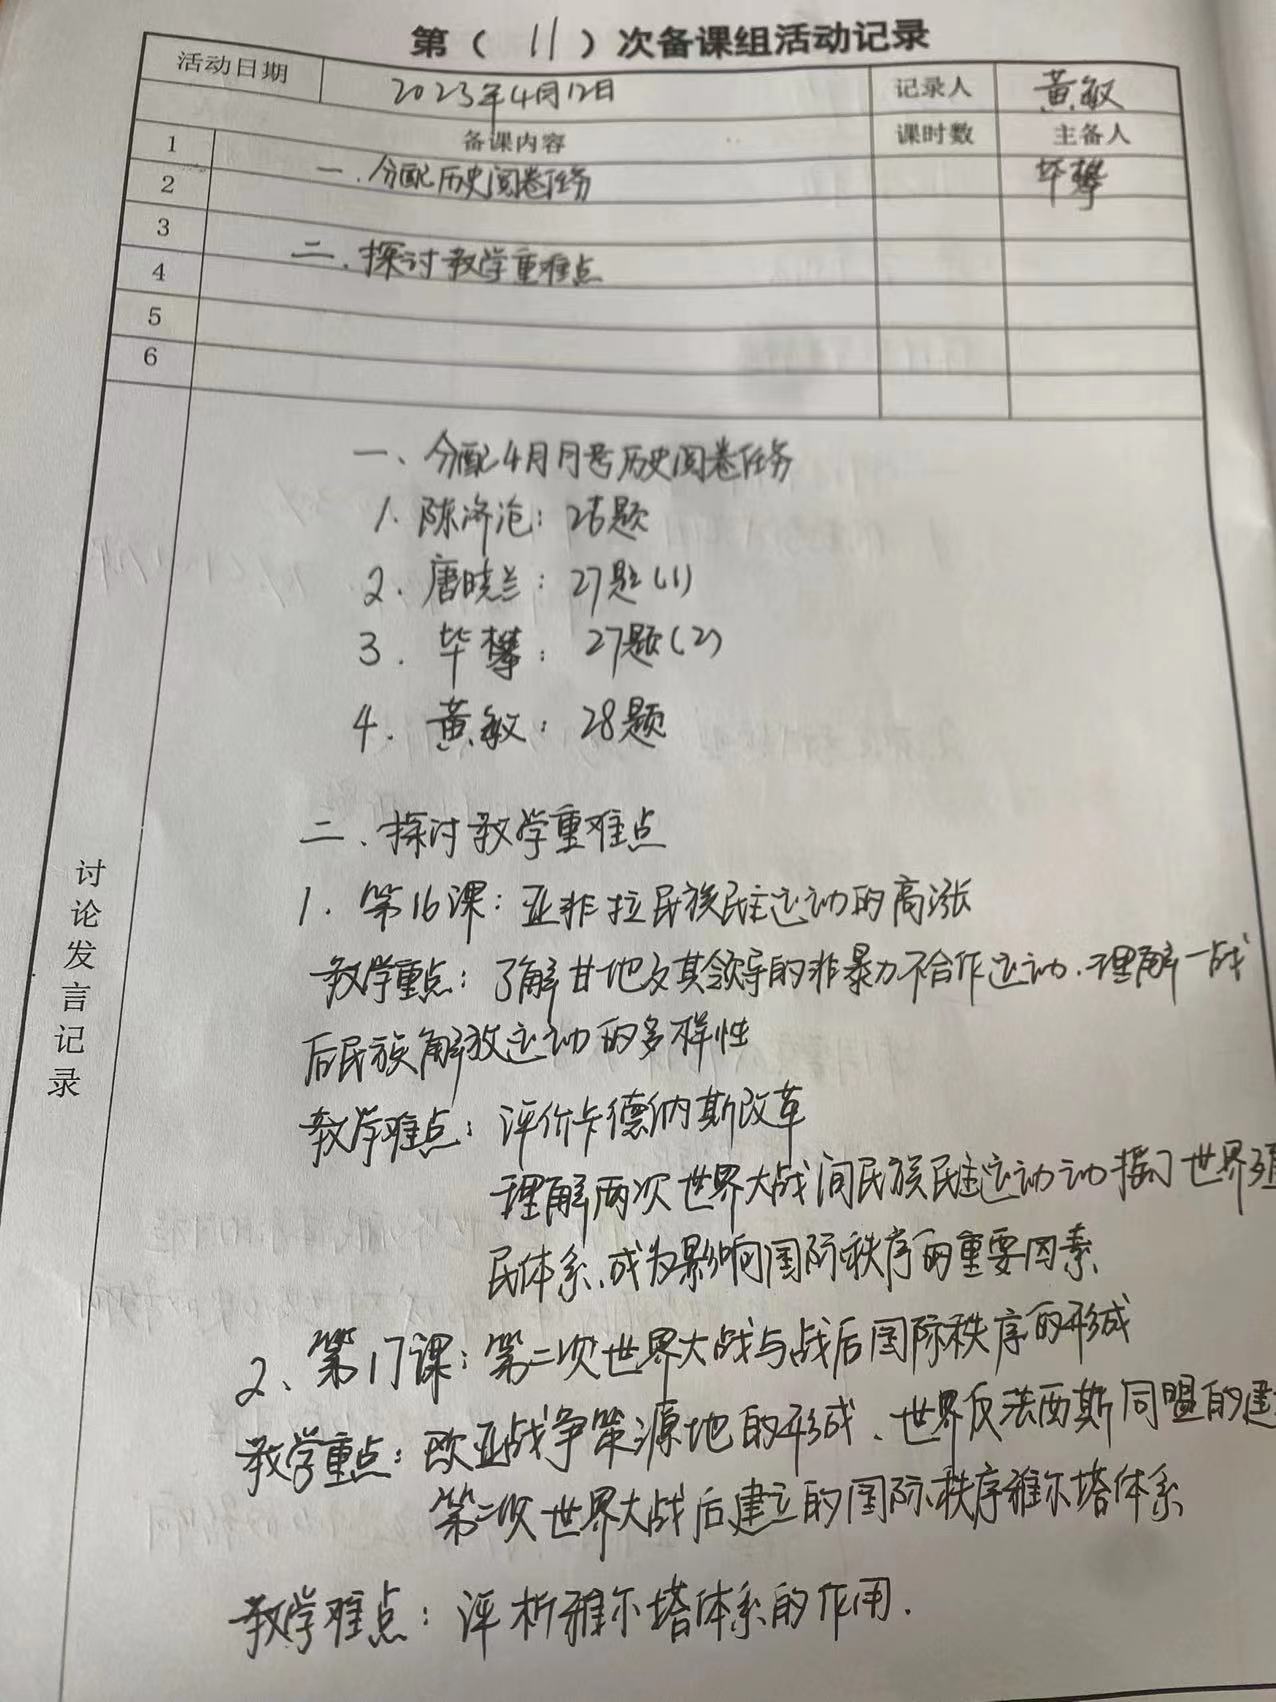 第（ 11 ）次备课组活动记录
活动日期 2023年4月12日 记录人 黄敏
1 备课内容 课时数 主备人
2 一.分配历史阅卷任务 毕攀
3
4 二.探讨教学重难点
5
6
讨论发言记录
一、分配4月月考历史阅卷任务
1. 陈济沧：26题
2. 唐晓兰：27题(1)
3. 毕攀：27题(2)
4. 黄敏：28题
二.探讨教学重难点
1. 第16课：亚非拉民族民主运动的高涨
教学重点：了解甘地及其领导的非暴力不合作运动.理解一战
后民族解放运动的多样性
教学难点：评价卡德纳斯改革
理解两次世界大战间民族民主运动动摇了世界殖
民体系、成为影响国际秩序的重要因素
2、第17课：第二次世界大战与战后国际秩序的形成
教学重点：欧亚战争策源地的形成、世界反法西斯同盟的建
第二次世界大战后建立的国际秩序雅尔塔体系
教学难点：评析雅尔塔体系的作用.